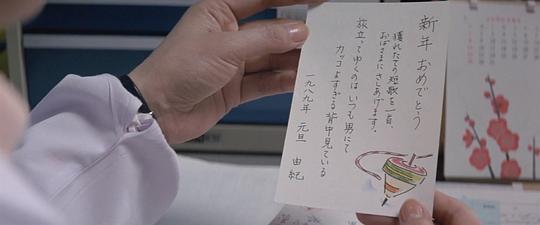 新年 おめでとう
獲れたての短歌を一首、
おばさまにさしあげます。
旅立ってゆくのはいつも男にて
カッコよすぎる背中見ている
一九八九年 元旦 由紀